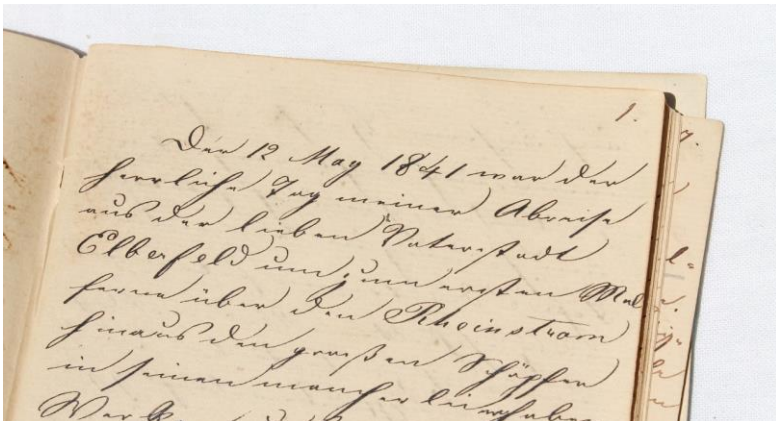 1.
Der 12 May 1841 war der
herrliche Tag meiner Abreise
aus der lieben Vaterstadt
Elberfeld um zum ersten Mal
ferne über den Rheinstrom
hinaus den großen Schöpfer
in seinen mancherlei erhabe